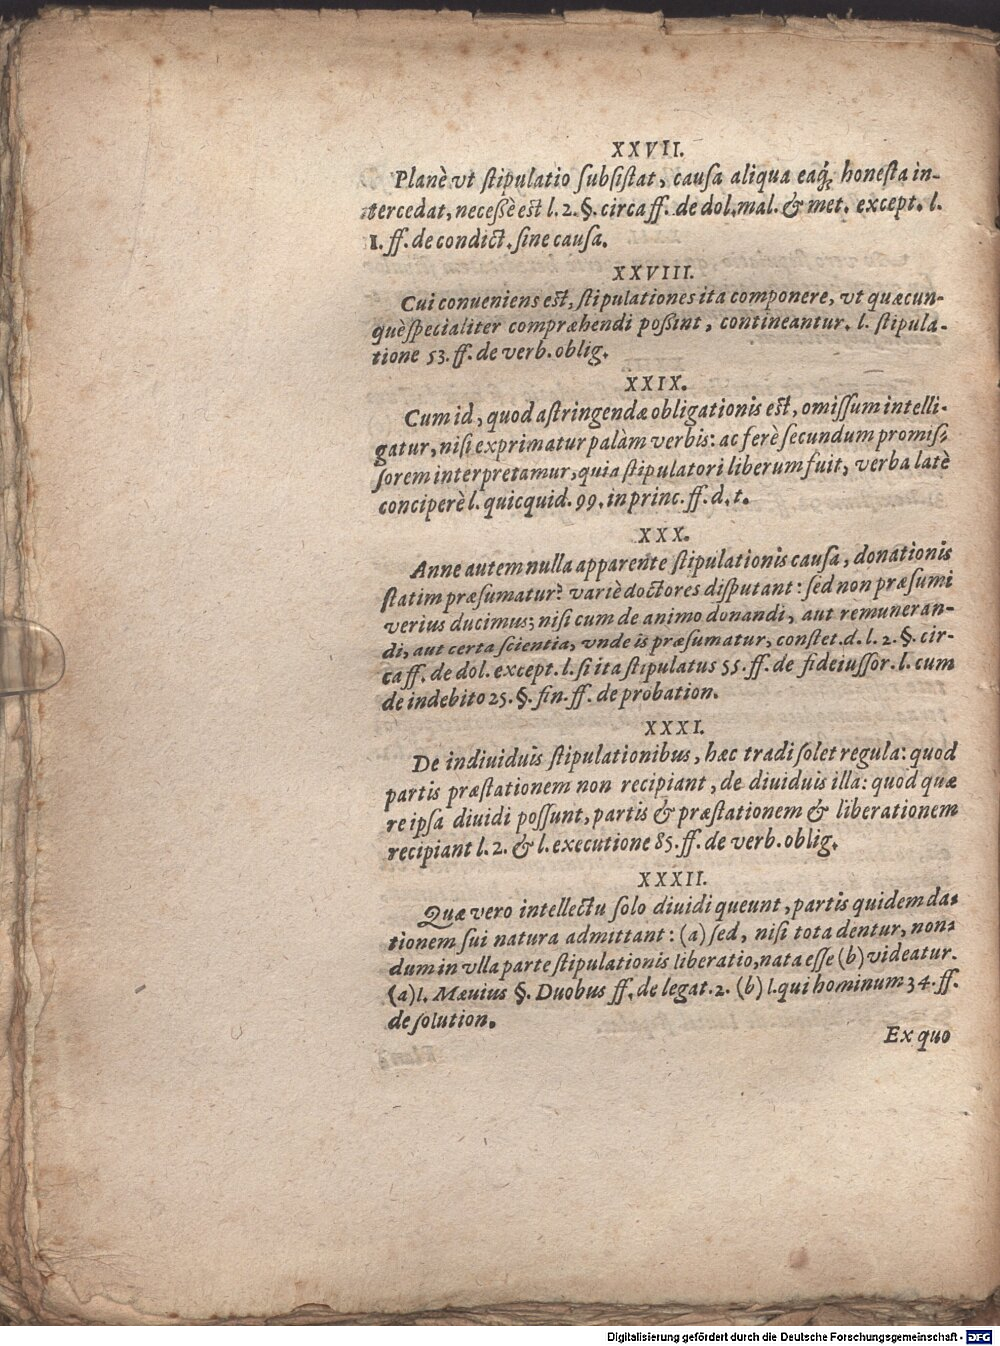 XXVII.
Planè vt ſtipulatio ſubſiſtat, cauſa aliqua eaq́; honeſta in-
tercedat, neceßè eſt l. 2. §. circa ff. de dol. mal. & met. except. l.
1. ff. de condict. ſine cauſa.
XXVIII.
Cui conueniens eſt, ſtipulationes ita componere, vt quæcun-
què ſpecialiter compræhendi poßint, contineantur. l. ſtipula-
tione 53. ff. de verb. oblig.
XXIX.
Cum id, quod aſtringendæ obligationis eſt, omiſſum intelli-
gatur, niſi exprimatur palàm verbis: ac ferè ſecundum promiſ-
ſorem interpretamur, quia ſtipulatori liberum fuit, verba latè
conciperè l. quicquid. 99. in princ. ff. d. t.
XXX.
Anne autem nulla apparente ſtipulationis cauſa, donationis
ſtatim præſumatur? variè doctores diſputant: ſed non præſumi
verius ducimus; niſi cum de animo donandi, aut remuneran-
di, aut certa ſcientia, vnde is præſumatur, conſtet. d. l. 2. §. cir-
ca ff. de dol. except. l. ſi ita ſtipulatus 55. ff. de fideiuſſor. l. cum
de indebito 25. §. fin. ff. de probation.
XXXI.
De indiuiduis ſtipulationibus, hæc tradi ſolet regula: quod
partis præſtationem non recipiant, de diuiduis illa: quod quæ
re ipſa diuidi poſſunt, partis & præſtationem & liberationem
recipiant l. 2. & l. executione 85. ff. de verb. oblig.
XXXII.
Quæ vero intellectu ſolo diuidi queunt, partis quidem da-
tionem ſui natura admittant: (a) ſed, niſi tota dentur, non-
dum in vlla parte ſtipulationis liberatio, nata eſſe (b) videatur.
(a) l. Mæuius §. Duobus ff. de legat. 2. (b) l. qui hominum 34. ff.
de ſolution.
Ex quo
Digitalisierung gefördert durch die Deutsche Forschungsgemeinschaft - DFG